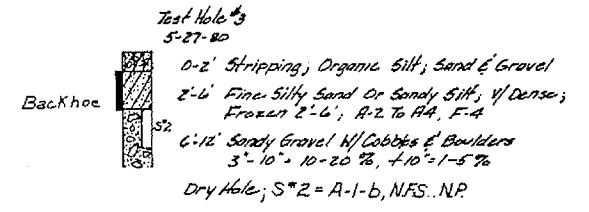 Test Hole #3
5-27-80
0-2' Stripping; Organic Silt; Sand & Gravel
2'-6' Fine Silty Sand Or Sandy Silt; V/Dense;
Frozen 2'-6'; A-2 To A4, F-4
Backhoe
S#2
6'-12' Sandy Gravel W/Cobbles & Boulders
3"-10" = 10-20 %, +10" = 1-5%
Dry Hole; S#2 = A-1-b, N.F.S.. N.P.